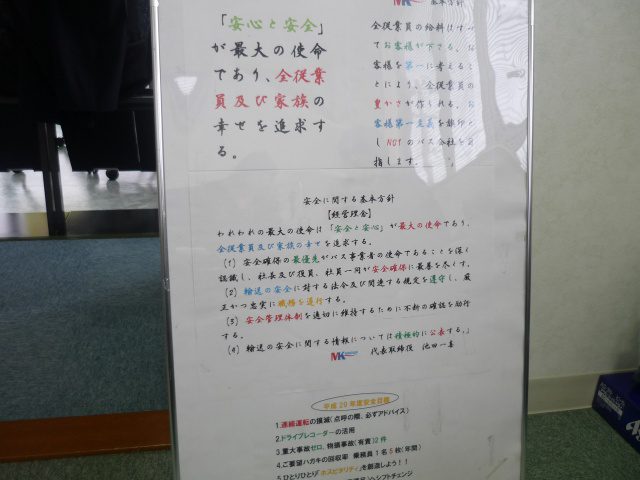 「安心と安全」
が最大の使命
であり、全従業
員及び家族の
幸せを追求す
る。
MK
基本方針
全従業員の給料はすべ
てお客様が下さる。お
客様を第一に考えるこ
とにより、全従業員の
豊かさが作られる。お
客様第一主義を旗印と
し NO1 のバス会社を目
指します。
安全に関する基本方針
【経営理念】
われわれの最大の使命は「安全と安心」が最大の使命であり、
全従業員及び家族の幸せを追求する。
(1) 安全確保の最優先がバス事業者の使命であることを深く
認識し、社長及び役員、社員一同が安全確保に最善を尽くす。
(2) 輸送の安全に対する法令及び関連する規定を遵守し、厳
正かつ忠実に職務を遂行する。
(3) 安全管理体制を適切に維持するために不断の確認を励行
する。
(4) 輸送の安全に関する情報については積極的に公表する。」
MK 代表取締役 池田一喜
平成20年度安全目標
1.連続運転の撲滅(点呼の際、必ずアドバイス)
2.ドライブレコーダーの活用
3.重大事故ゼロ、物損事故(有責)12件
4.ご要望ハガキの回収率 乗務員1名5枚(年間)
5.ひとりひとり「ホスピタリティ」を創造しよう!!
シフトチェンジ